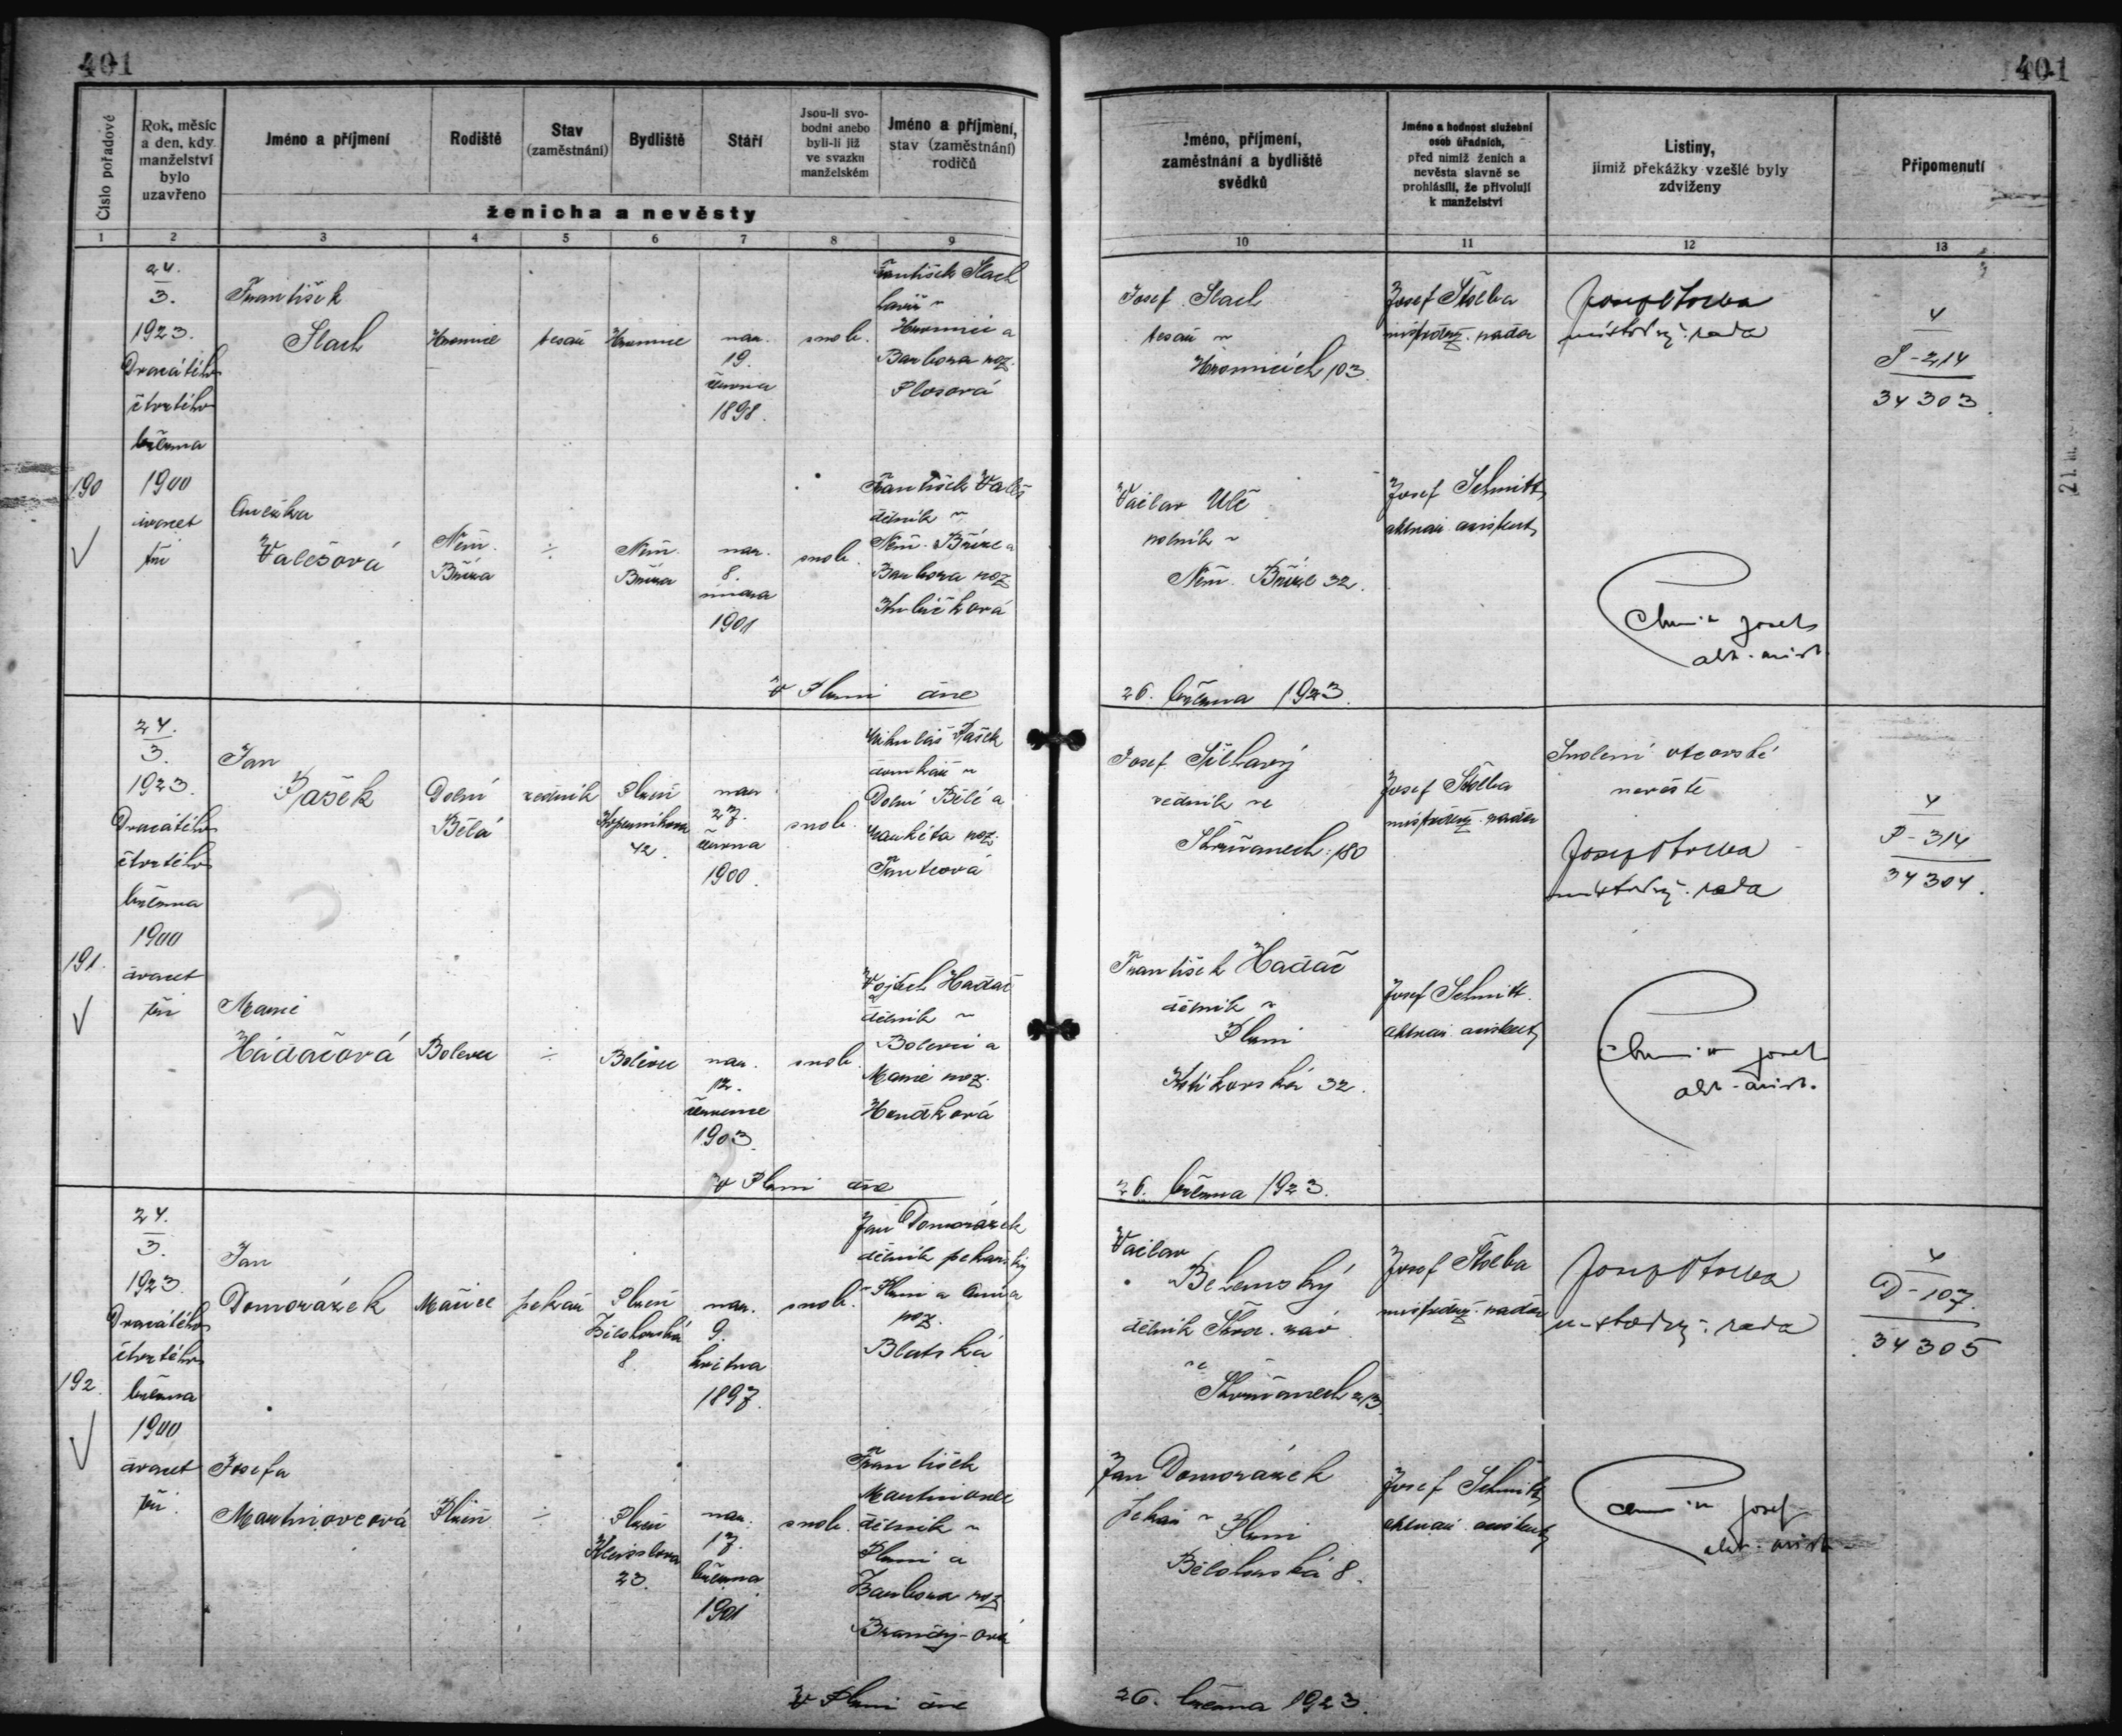 401
401
Číslo pořadové
Rok, měsíc
a den, kdy
manželství
bylo
uzavřeno
Jméno a příjmení
Rodiště
Stav
(zaměstnání)
Bydliště
Stáří
Jsou-li svo-
bodni anebo
byli-li již
ve svazku
manželském
Jméno a příjmení,
stav (zaměstnání)
rodičů
ženicha a nevěsty
1 2 3 4 5 6 7 8 9
Jméno, příjmení,
zaměstnání a bydliště
svědků
Jméno a hodnost služební
osob úředních,
před nimiž ženich a
nevěsta slavně se
prohlásili, že přivolují
k manželství
Listiny,
jimiž překážky vzešlé byly
zdviženy
Připomenutí
10 11 12 13
190
24.
3.
1923.
Dvacátého
čtvrtého
března
1900
dvacet
tři
František
Slach
Hromnice
tesař
Hromnice
nar.
19.
června
1898.
svob.
František Slach
Hromnici a
Barbora roz.
Plosová
Josef Slach
tesař v
Hromnicích 103.
Josef Štolba
místodrž. rada
Josef Štolba
místodrž. rada
4
S-214
34303.
Anežka
Valešová
Něm.
Bříza
÷
Něm.
Bříza
nar.
8.
února
1901
svob.
František Valeš
dělník v
Něm. Bříze a
Barbora roz.
Václav Ulč
rolník v
Něm. Bříze 32.
Josef Schmitt
aktuár. asistent
Josef
akt. asist.
V Plzni dne
26. března 1923.
191.
24.
3.
1923.
Dvacátého
čtvrtého
března
1900
dvacet
tři
Jan
Pašek
Dolní
Bělá
zedník
Plzeň
Koperníkova
42.
nar.
27.
června
1900.
svob.
Mikuláš Pašek
domkář v
Dolní Bělé a
Markéta roz.
Josef Šilhavý
zedník ve
Skvrňanech 180
Josef Štolba
místodrž. rada
Svolení otcovské
nevěstě
Josef Štolba
místodrž. rada
4
P-314
34304.
Marie
Hadačová
Bolevec
÷
Bolevec
nar.
12.
července
1903.
svob.
Vojtěch Hadač
dělník v
Bolevci a
Marie roz.
František Hadač
dělník v
Plzni
32.
Josef Schmitt.
aktuár. asistent
Josef
akt. asist.
V Plzni dne
26. března 1923.
192.
24.
3.
1923.
Dvacátého
čtvrtého
března
1900
dvacet
tři.
Jan
Domorázek
pekař
Plzeň
Bělohorská
8.
nar.
9.
května
1897.
svob.
Jan Domorázek
dělník pekařský
v Plzni a Anna
roz.
Blatská
Václav
dělník Škod. záv.
ve
Skvrňanech 213
Josef Štolba
místodrž. rada
Josef Štolba
místodrž. rada
4
D-107.
34305
Josefa
Martinovcová
Plzeň
÷
Plzeň
23.
nar.
17.
března
1901
svob.
František
Martinovec
dělník v
Plzni a
Barbora roz.
Jan Domorázek
pekař v
Plzni
Bělohorská 8.
Josef Schmitt
aktuár. asistent
Josef
akt. asist.
V Plzni dne
26. března 1923.